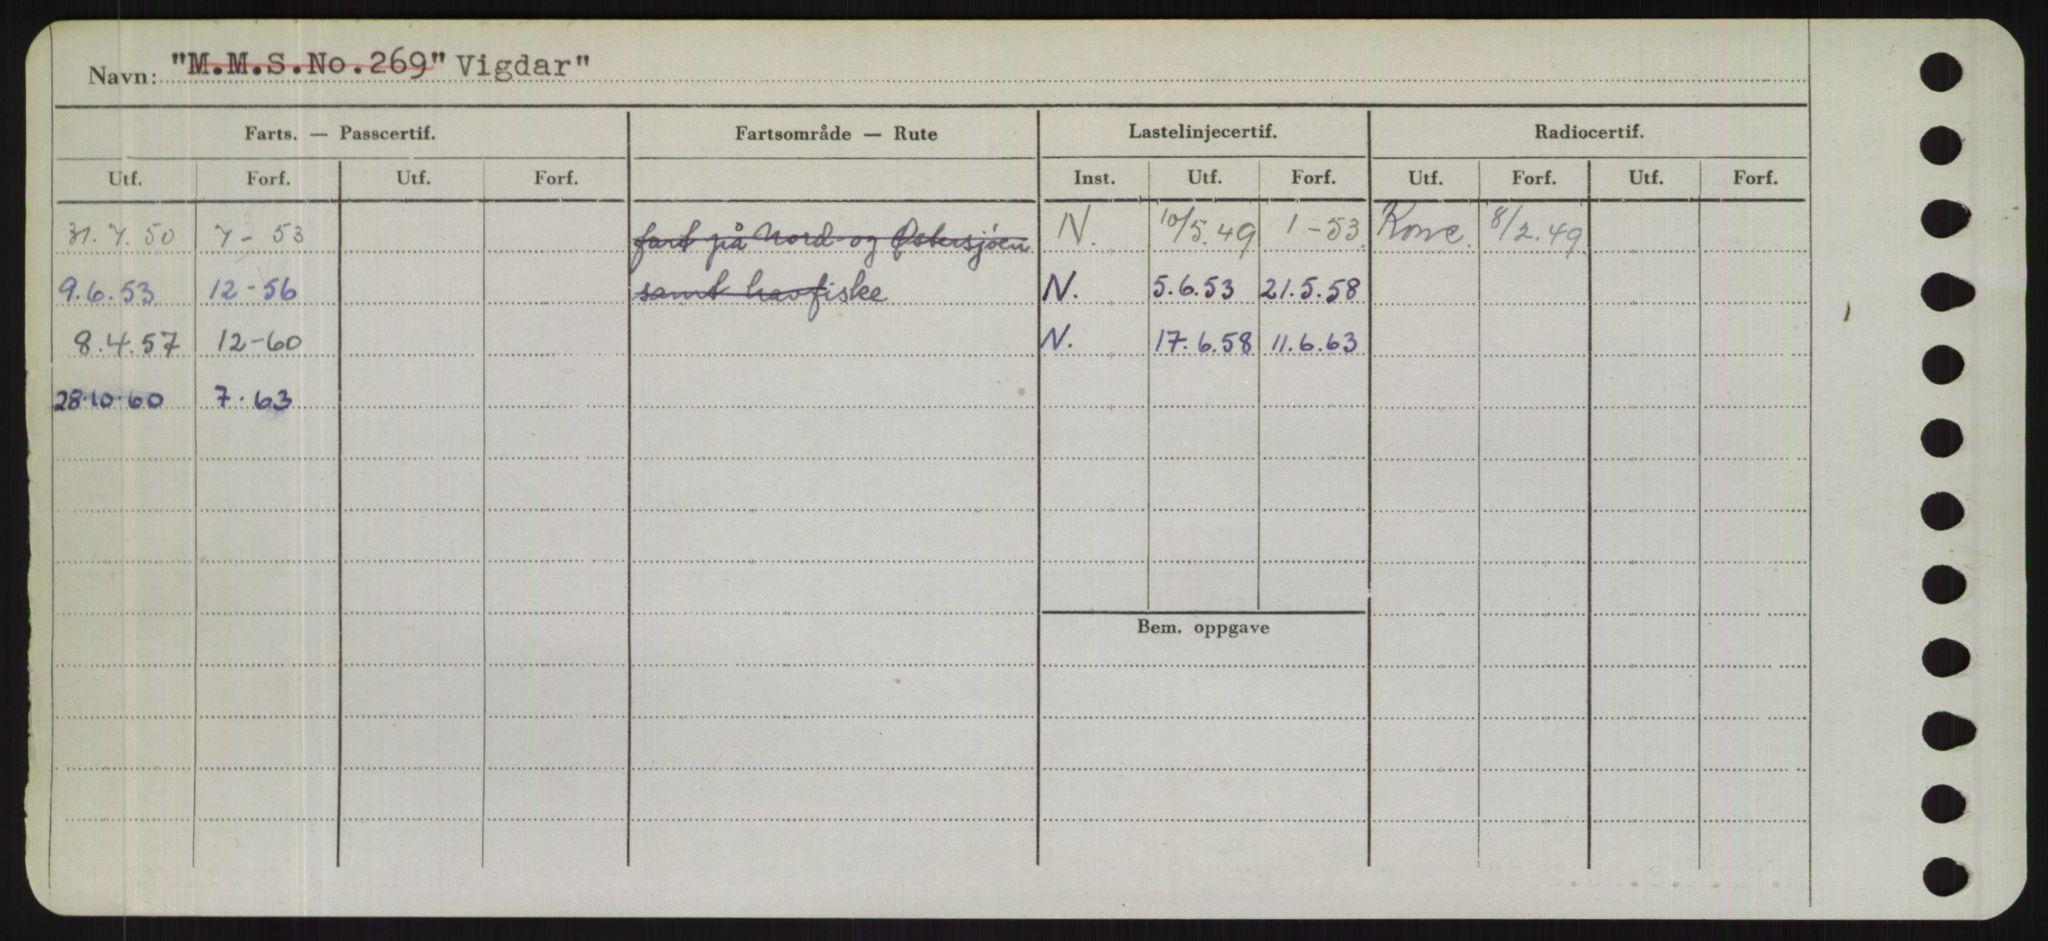 Navn: "M.M.S.No.269" Vigdar"
Farts. — Passcertif. Fartsområde — Rute Lastelinjecertif. Radiocertif.
Utf. Forf. Utf. Forf. Inst. Utf. Forf. Utf. Forf. Utf. Forf.
31.7.50 7-53 fart på Nord- og Østersjøen N. 10/5.49 1-53 8/2.49
9.6.53 12-56 samt havfiske N. 5.6.53 21.5.58
8.4.57 12-60 N. 17.6.58 11.6.63
28.10.60 7.63
Bem. oppgave